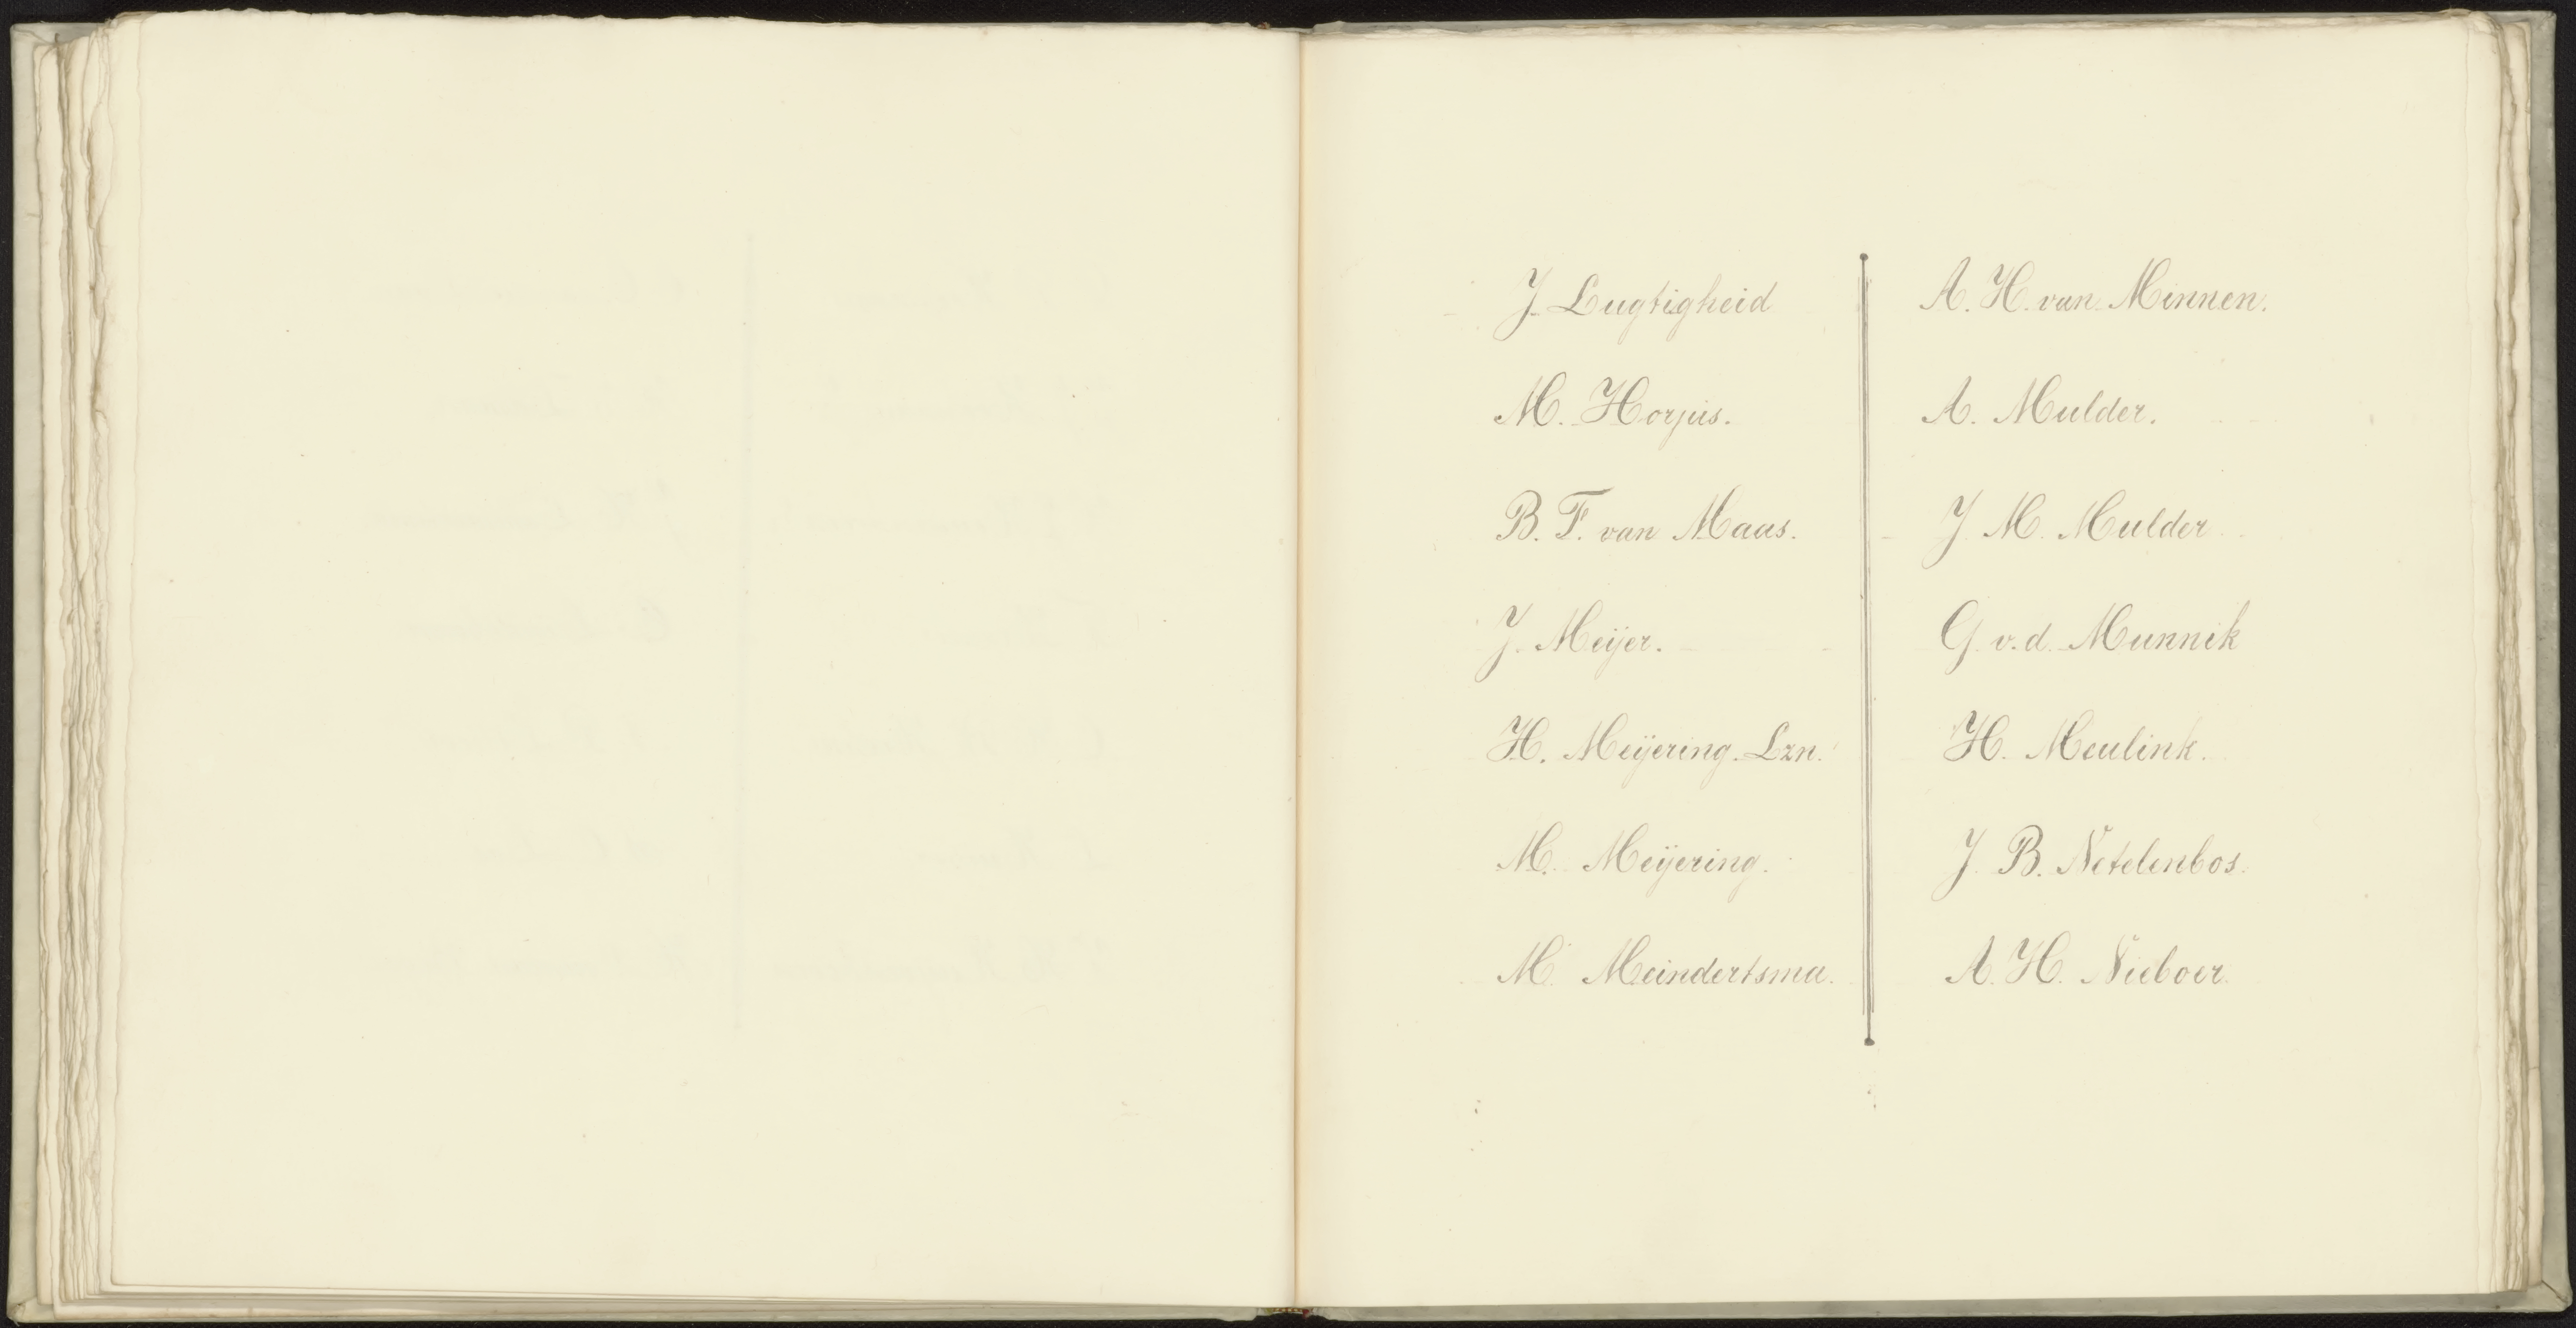 J. Lugtigheid
M. Horjus.
B. F. van Maas.
J. Meijer.
H. Meijering. Lzn.
M. Meijering.
M. Meindertsma.
A. H. van Minnen.
A. Mulder.
J. M. Mulder
G. v. d. Munnik
H. Meulink.
J. B. Netelenbos.
A. H. Nieboer.